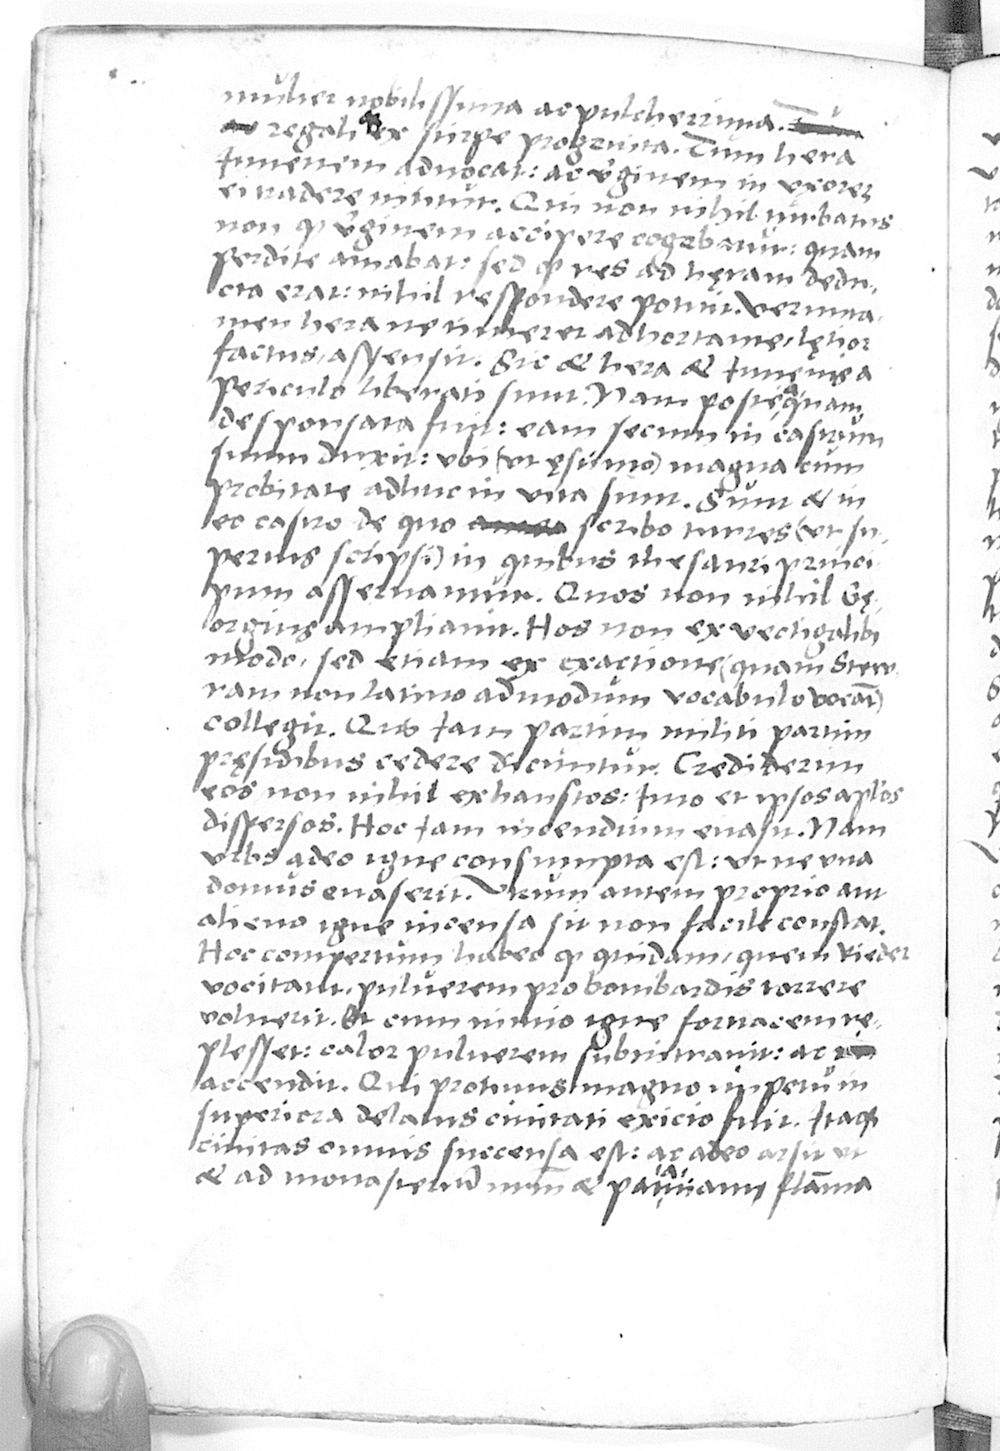 mulier nobilissima ac pulcherrima.
regali ex stirpe progenita. Tum hera
Iuuenem aduocat: ac v̄ginem in vxorē
ei tradere nititur. Qui non nihil turbatus
non ꝙ v̄ginem accipere cogebatur: quam
perdite amabat: sed ꝙ res ad hęram dedu-
cta erat: nihil respondere potuit. Verunta-
men hera ne timeret adhortante, lętior
factus, assensit. Sic & hera & Iuuenis a
periculo liberati sunt. Nam posteaquam
desponsata fuit: eam secum in castrum
suum duxit: vbi (vt ęstimo) magna cum
probitate adhuc in vita sunt. Sunt & in
eo castro de quo scribo turres (vt su-
perius scripsi) in quibus thesauri princi-
pum asseruantur. Quos non nihil Gę-
orgius ampliauit. Hos non ex vectigalibꝰ
modo, sed etiam ex exactione (quam Stew-
ram non latino admodum vocabulo vocāt)
collegit. Quos Iam partim militi partim
pręsidibus cedere dicuntur. Crediderim
eos non nihil exhaustos: Imo et ipsos apl̄os
dispersos. Hoc Iam incendium euasit. Nam
vrbs adeo igne consumpta est: vt ne vna
domus euaserit. Vtrum autem proprio aut
alieno igne incensa sit non facile constat.
Hoc compertum habeo ꝙ quidam, quem Rieder
vocitant, puluerem pro bombardis torrere
voluerit. Et cum nimio igne fornacem re-
plesset: calor puluerem subintrauit: ac
accendit. Qui protinus magno impetu in
superiora delatus ciuitati exicio fuit. Itaqꝫ
ciuitas omnis succensa est: ac adeo arsit vt
& ad monasterium nr̄m & flāma